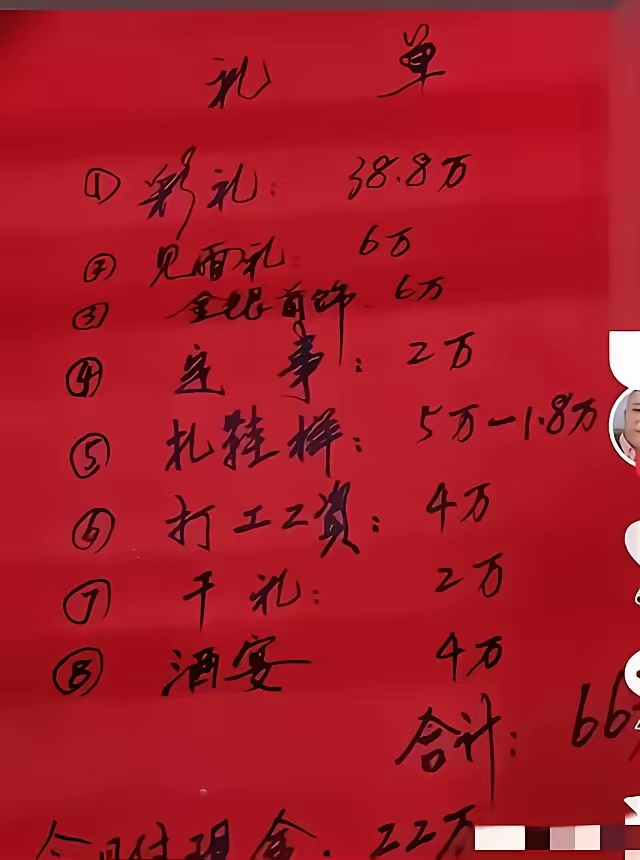 礼 单
① 彩礼: 38.8万
② 见面礼: 6万
③ 金银首饰 6万
④ 定事: 2万
⑤ 扎鞋样: 5万-1.8万
⑥ 打工工资: 4万
⑦ 干礼: 2万
⑧ 酒宴 4万
合计: 66万
今日付现金: 22万